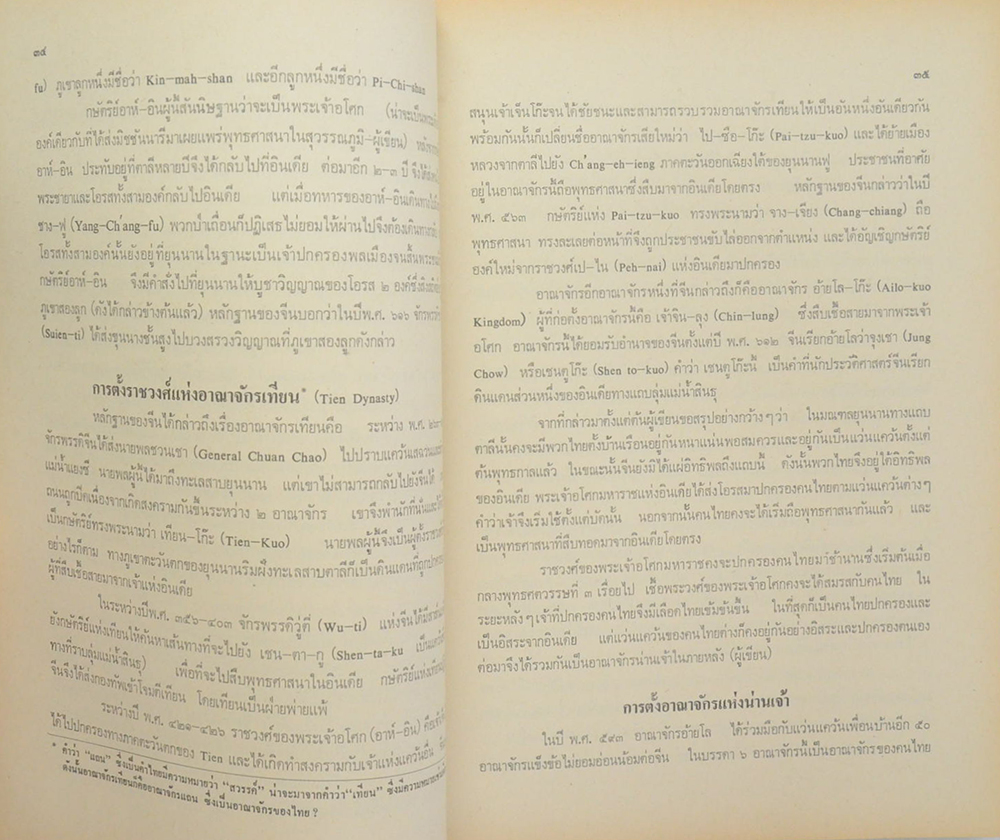 ๓๔
fu) ภูเขาลูกหนึ่งมีชื่อว่า Kin-mah-shan และอีกลูกหนึ่งมีชื่อว่า Pi-Chi-shan
กษัตริย์อาห์-อินผู้นี้สันนิษฐานว่าจะเป็นพระเจ้าอโศก (น่าจะเป็น
องค์เดียวกับที่ได้ส่งมิชชันนารีมาเผยแพร่พุทธศาสนาในสุวรรณภูมิ-ผู้เขียน)
อาห์-อิน ประทับอยู่ที่ตาลีหลายปีจึงได้กลับไปที่อินเดีย ต่อมาอีก ๒-๓ ปี จึงได้
พระชายาและโอรสทั้งสามองค์กลับไปอินเดีย แต่เมื่อทหารของอาห์-อินเดินทาง
ชาง-ฟู (Yang-Ch'ang-fu) พวกป่าเถื่อนก็ปฏิเสธไม่ยอมให้ผ่านไปจึงต้องเดินทาง
โอรสทั้งสามองค์นั้นยังอยู่ที่ยูนนานในฐานะเป็นเจ้าปกครองพลเมืองจนสิ้นพระชนม์
กษัตริย์อาห์-อิน จึงมีคำสั่งไปที่ยูนนานให้บูชาวิญญาณของโอรส ๒ องค์ซึ่ง
ภูเขาสองลูก (ดังได้กล่าวข้างต้นแล้ว) หลักฐานของจีนบอกว่าในปีพ.ศ. ๖๑๖
(Suien-ti) ได้ส่งขุนนางชั้นสูงไปบวงสรวงวิญญาณที่ภูเขาสองลูกดังกล่าว
การตั้งราชวงศ์แห่งอาณาจักรเทียน* (Tien Dynasty)
หลักฐานของจีนได้กล่าวถึงเรื่องอาณาจักรเทียนคือ ระหว่าง พ.ศ.
จักรพรรดิจีนได้ส่งนายพลชวนเชา (General Chuan Chao) ไปปราบแคว้น
แม่น้ำแยงซี นายพลผู้นี้ได้มาถึงทะเลสาบยูนนาน แต่เขาไม่สามารถกลับไปยังจีนได้
ถนนถูกปิดเนื่องจากเกิดสงครามกันขึ้นระหว่าง ๒ อาณาจักร เขาจึงพำนักที่นั่น
เป็นกษัตริย์ทรงพระนามว่า เทียน-โก๊ะ (Tien-Kuo) นายพลผู้นี้จึงเป็นผู้ตั้ง
อย่างไรก็ตาม ทางภูเขาตะวันตกของยูนนานริมฝั่งทะเลสาบตาลีก็เป็นดินแดนที่ถูก
ผู้ที่สืบเชื้อสายมาจากเจ้าแห่งอินเดีย
ในระหว่างปีพ.ศ. ๓๕๖-๔๐๓ จักรพรรดิวู่ตี่ (Wu-ti) แห่งจีนได้
ยังกษัตริย์แห่งเทียนให้ค้นหาเส้นทางที่จะไปยัง เชน-ตา-กู (Shen-ta-ku
ทางที่ราบลุ่มแม่น้ำสินธุ) เพื่อที่จะไปสืบพุทธศาสนาในอินเดีย กษัตริย์แห่งเทียน
จีนจึงได้ส่งกองทัพเข้าโจมตีเทียน โดยเทียนเป็นฝ่ายพ่ายแพ้
ระหว่างปี พ.ศ. ๔๒๑-๔๒๖ ราชวงศ์ของพระเจ้าอโศก (อาห์-อิน) คือ
ได้ไปปกครองทางภาคตะวันตกของ Tien และได้เกิดทำสงครามกับเจ้าแห่งแคว้นอื่น
* คำว่า "แถน" ซึ่งเป็นคำไทยมีความหมายว่า "สวรรค์" น่าจะมาจากคำว่า"เทียน" ซึ่งมีความหมาย
ดังนั้นอาณาจักรเทียนก็คืออาณาจักรแถน ซึ่งเป็นอาณาจักรของไทย ?
๓๕
สนุนเจ้าเจ็นโก๊ะจนได้ชัยชนะและสามารถรวบรวมอาณาจักรเทียนให้เป็นอันหนึ่งอันเดียวกัน
พร้อมกันนั้นก็เปลี่ยนชื่ออาณาจักรเสียใหม่ว่า ไป-ซือ-โก๊ะ (Pai-tzu-kuo) และได้ย้ายเมือง
หลวงจากตาลีไปยัง Ch'ang-eh-ieng ภาคตะวันออกเฉียงใต้ของยูนนานฟู ประชาชนที่อาศัย
อยู่ในอาณาจักรนี้ถือพุทธศาสนาซึ่งสืบมาจากอินเดียโดยตรง หลักฐานของจีนกล่าวว่าในปี
พ.ศ. ๕๖๓ กษัตริย์แห่ง Pai-tzu-kuo ทรงพระนามว่า จาง-เจียง (Chang-chiang) ถือ
พุทธศาสนา ทรงละเลยต่อหน้าที่จึงถูกประชาชนขับไล่ออกจากตำแหน่ง และได้อัญเชิญกษัตริย์
องค์ใหม่จากราชวงศ์เป-ไน (Peh-nai) แห่งอินเดียมาปกครอง
อาณาจักรอีกอาณาจักรหนึ่งที่จีนกล่าวถึงก็คืออาณาจักร อ้ายโล-โก๊ะ (Ailo-kuo
Kingdom) ผู้ที่ก่อตั้งอาณาจักรนี้คือ เจ้าจิน-ลุง (Chin-lung) ซึ่งสืบเชื้อสายมาจากพระเจ้า
อโศก อาณาจักรนี้ได้ยอมรับอำนาจของจีนตั้งแต่ปี พ.ศ. ๖๑๒ จีนเรียกอ้ายโลว่าจุงเชา (Jung
Chow) หรือเชนตูโก๊ะ (Shen to-kuo) คำว่า เชนตูโก๊ะนี้ เป็นคำที่นักประวัติศาสตร์จีนเรียก
ดินแดนส่วนหนึ่งของอินเดียทางแถบลุ่มแม่น้ำสินธุ
จากที่กล่าวมาตั้งแต่ต้นผู้เขียนขอสรุปอย่างกว้างๆว่า ในมณฑลยูนนานทางแถบ
ตาลีนั้นคงจะมีพวกไทยตั้งบ้านเรือนอยู่กันหนาแน่นพอสมควรและอยู่กันเป็นแว่นแคว้นตั้งแต่
ต้นพุทธกาลแล้ว ในขณะนั้นจีนยังมิได้แผ่อิทธิพลถึงแถบนี้ ดังนั้นพวกไทยจึงอยู่ใต้อิทธิพล
ของอินเดีย พระเจ้าอโศกมหาราชแห่งอินเดียได้ส่งโอรสมาปกครองคนไทยตามแว่นแคว้นต่างๆ
คำว่าเจ้าจึงเริ่มใช้ตั้งแต่บัดนั้น นอกจากนั้นคนไทยคงจะได้เริ่มถือพุทธศาสนากันแล้ว และ
เป็นพุทธศาสนาที่สืบทอดมาจากอินเดียโดยตรง
ราชวงศ์ของพระเจ้าอโศกมหาราชคงจะปกครองคนไทยมาช้านานซึ่งเริ่มต้นเมื่อ
กลางพุทธศตวรรษที่ ๓ เรื่อยไป เชื้อพระวงศ์ของพระเจ้าอโศกคงจะได้สมรสกับคนไทย ใน
ระยะหลังๆเจ้าที่ปกครองคนไทยจึงมีเลือดไทยเข้มข้นขึ้น ในที่สุดก็เป็นคนไทยปกครองและ
เป็นอิสระจากอินเดีย แต่แว่นแคว้นของคนไทยต่างก็คงอยู่กันอย่างอิสระและปกครองตนเอง
ต่อมาจึงได้รวมกันเป็นอาณาจักรน่านเจ้าในภายหลัง (ผู้เขียน)
การตั้งอาณาจักรแห่งน่านเจ้า
ในปี พ.ศ. ๕๙๓ อาณาจักรอ้ายโล ได้ร่วมมือกับแว่นแคว้นเพื่อนบ้านอีก ๕๐
อาณาจักรแข็งข้อไม่ยอมอ่อนน้อมต่อจีน ในบรรดา ๖ อาณาจักรนี้เป็นอาณาจักรของคนไทย